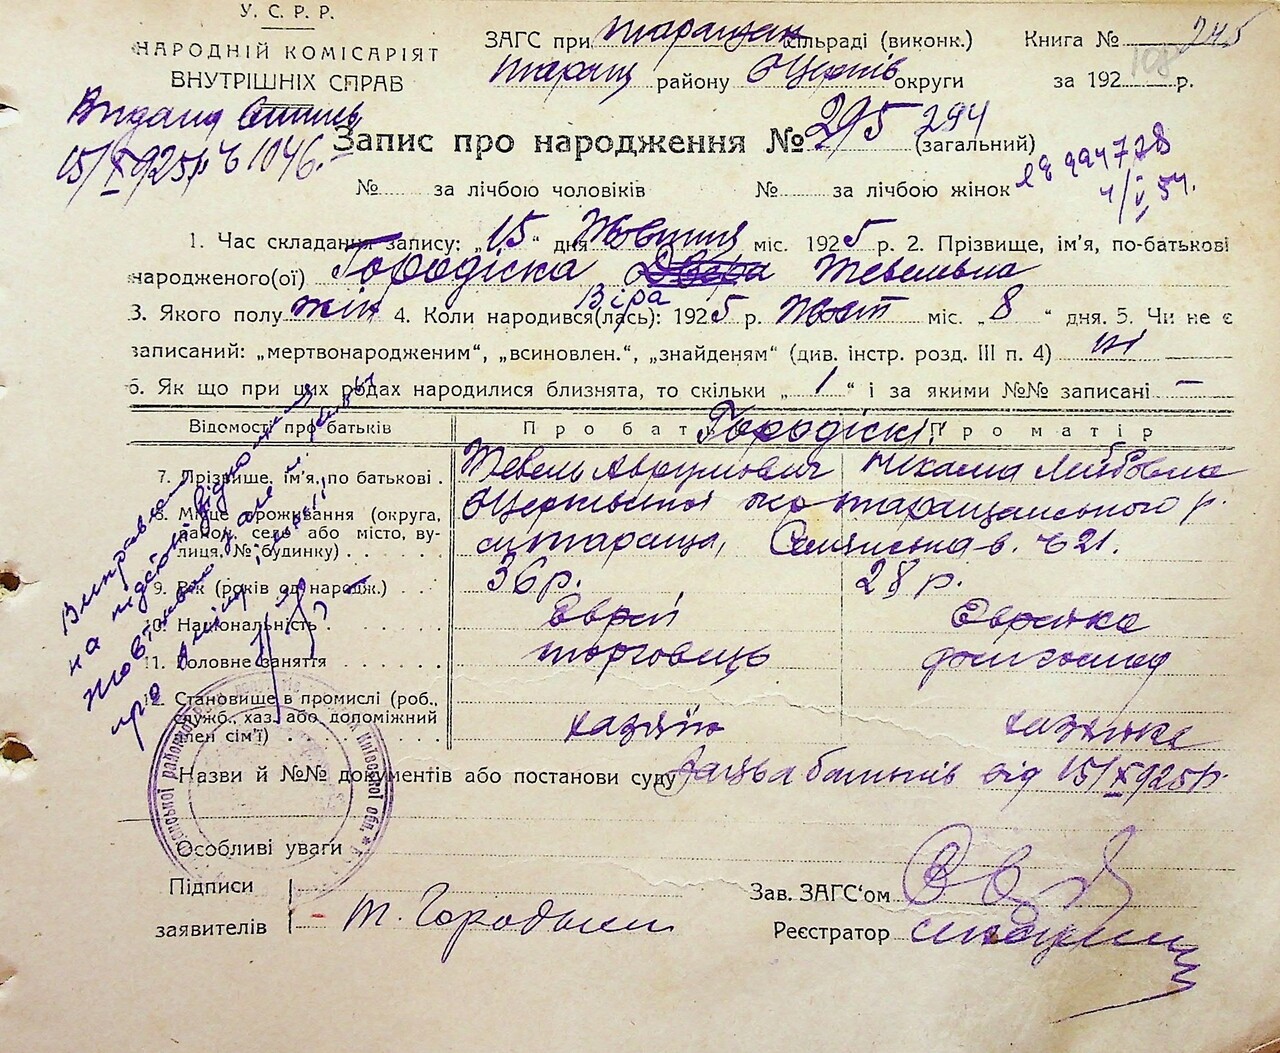 У. С. Р. Р.
НАРОДНІЙ КОМІСАРІЯТ
ВНУТРІШНІХ СПРАВ
ЗАГС при Таращан сільраді (виконк.)
Таращ району Б Церків округи
Книга № 245
108
за 192 р.
Видана
15/X 925р № 1046.
Запис про народження № 295 294
(загальний)
№ за лічбою чоловіків № за лічбою жінок
994728
4/V 54.
1. Час складання запису: „15“ дня Жовтня міс. 1925 р. 2. Прізвище, ім’я, по-батькові
народженого(ої) Городіска Двера Тевелевна
Віра
3. Якого полу жін 4. Коли народився(лась): 1925 р. Жовт міс. „8“ дня. 5. Чи не є
записаний: „мертвонародженим“, „всиновлен.“, „знайденям“ (див. інстр. розд. III п. 4) ні
6. Як що при цих родах народилися близнята, то скільки „1“ і за якими №№ записані —
Відомості про батьків Про батька Про матір
Городіскі
7. Прізвище, ім’я, по батькові . Тевель Аврумович Нехама Лейбовна
8. Місце проживання (округа, район, село або місто, вулиця, № будинку) Б Церківської таращанського р.
м Тараща, в. № 21.
9. Вік (років од народж.) 36 р. 28 р.
10. Національність Єврей Єврейка
11. Головне заняття торговець домгоспод
12. Становище в промислі (роб., служб., хаз. або допоміжний член сім’ї) хазяїн хазяйка
Назви й №№ документів або постанови суду Заява батьків від 15/X 925р.
Виправлено
на підставі
про
районної
Київської обл.
Особливі уваги
Підписи
заявителів Т. Городиский
Зав. ЗАГС‘ом
Реєстратор